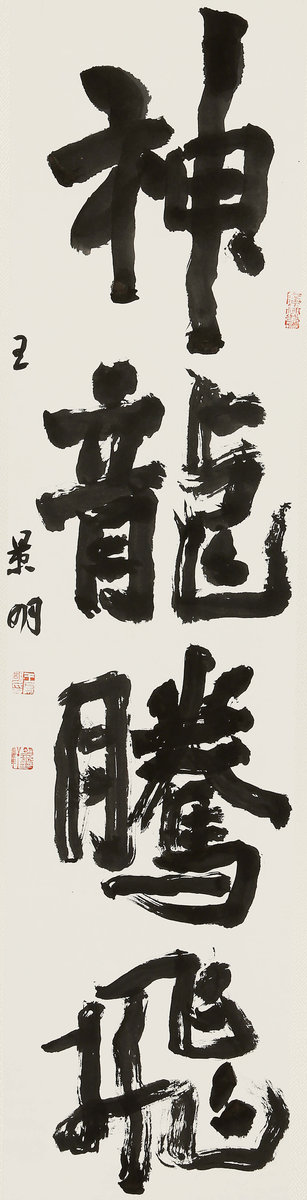 神龍騰飛
王景明